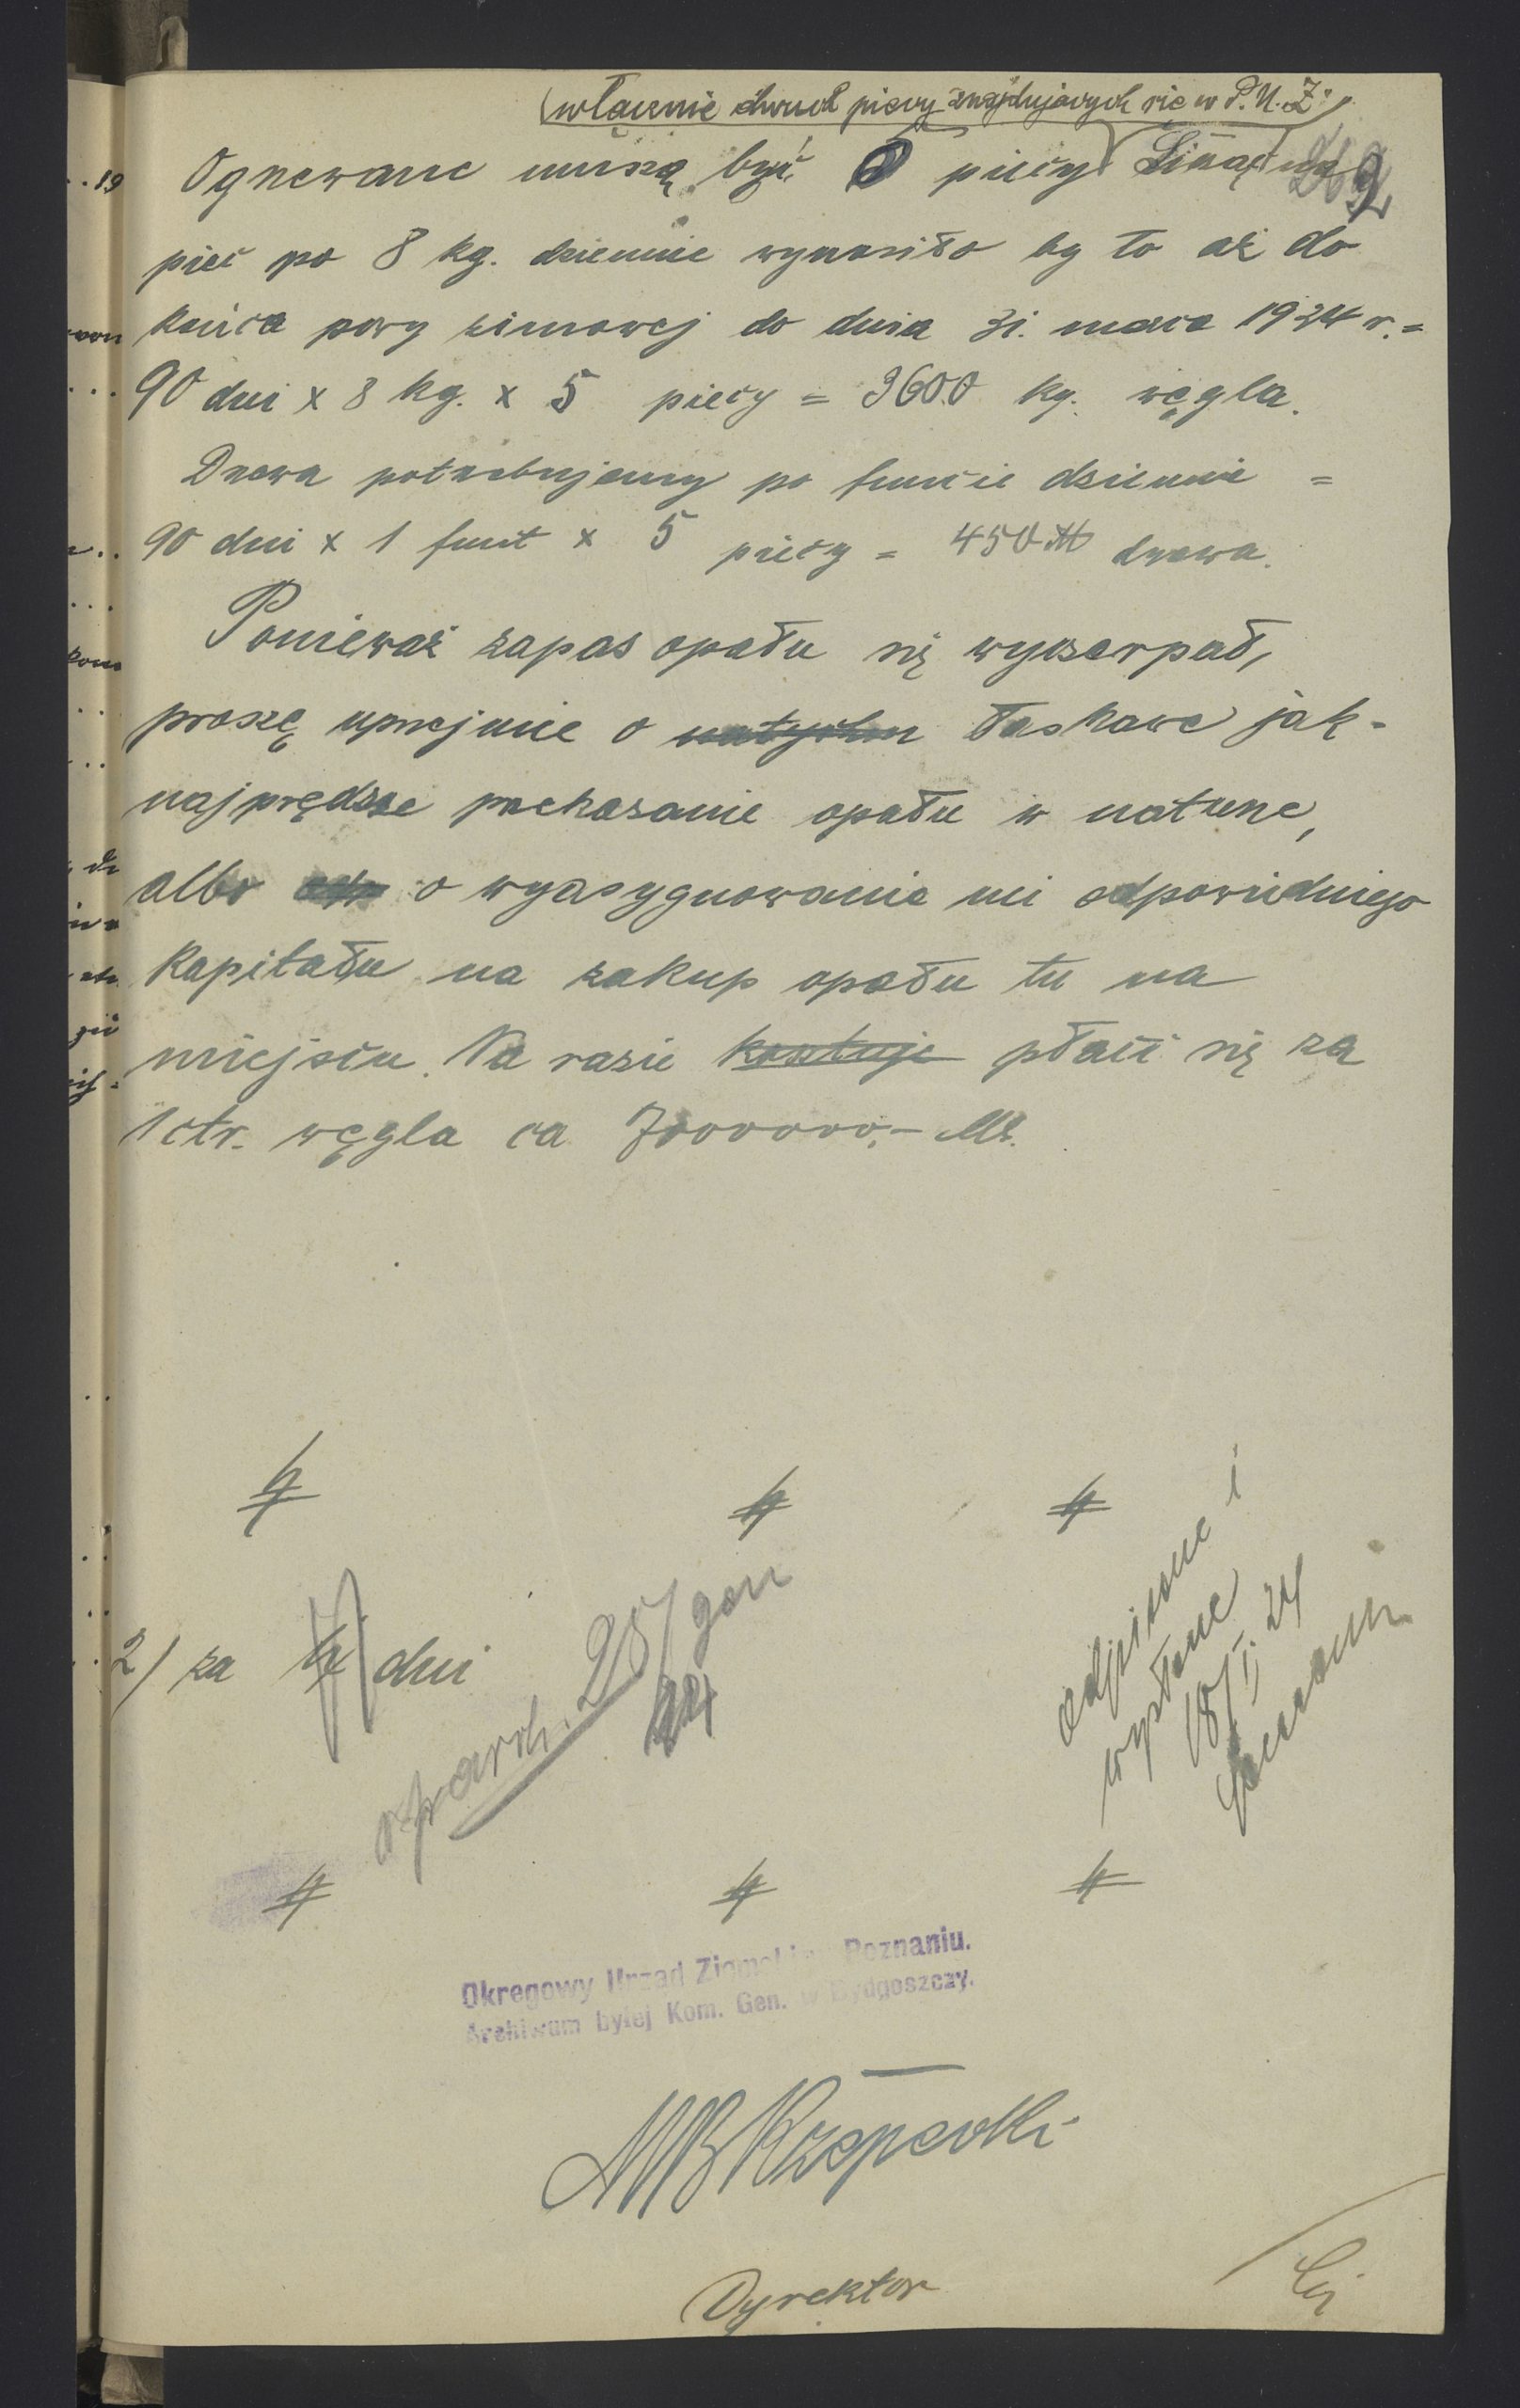 (włącznie dwuch piecy znajdujących się w P.U.Z.)
Ogrzewane muszą być 5 piecy Licząc na
piec po 8 kg. dziennie wynosiło by to aż do
końca pory zimowej do dnia 31. marca 1924 r. =
90 dni x 8 kg. x 5 piecy = 3600 kg. węgla.
Drzewa potrzebujemy po funcie dziennie =
90 dni x 1 funt x 5 piecy = 450 ℔ drzewa.
Ponieważ zapas opału się wyczerpał,
proszę uprzejmie o natychm łaskawe jak-
najprędsze przekazanie opału w naturze,
albo o wyasygnowanie mi odpowiedniego
kapitału na zakup opału tu na
miejscu. Na razie kosztuje płaci się za
1 ctr. węgla ca 7000000,- Mk.
odpisane i
wysłane
18/I. 24
2) za dni
25/
24
Okręgowy Urząd Ziemski w Poznaniu.
Archiwum byłej Kom. Gen. w Bydgoszczy.
Dyrektor